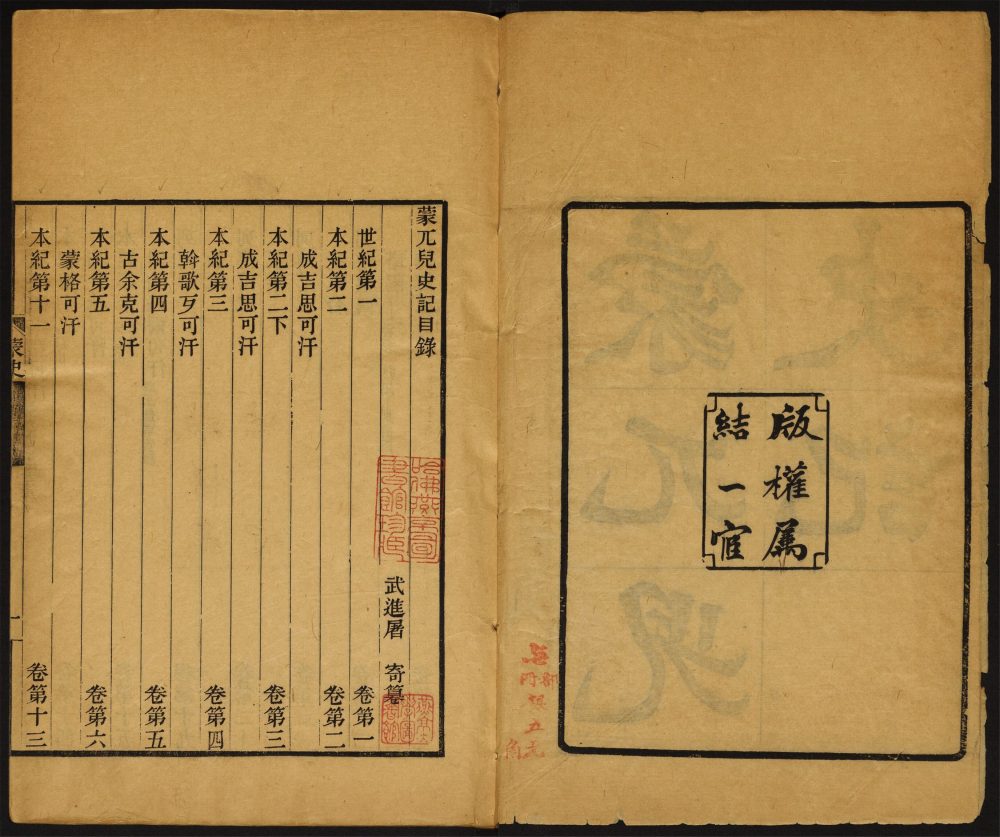 版權属
結一宧
蒙兀兒史記目錄
武進屠 寄纂
世紀第一 卷第一
本紀第二 卷第二
成吉思可汗
本紀第二下 卷第三
成吉思可汗
本紀第三 卷第四
斡歌歹可汗
本紀第四 卷第五
古余克可汗
本紀第五 卷第六
蒙格可汗
本紀第十一 卷第十三
蒙史
一
哈佛燕京圖
書館珍藏